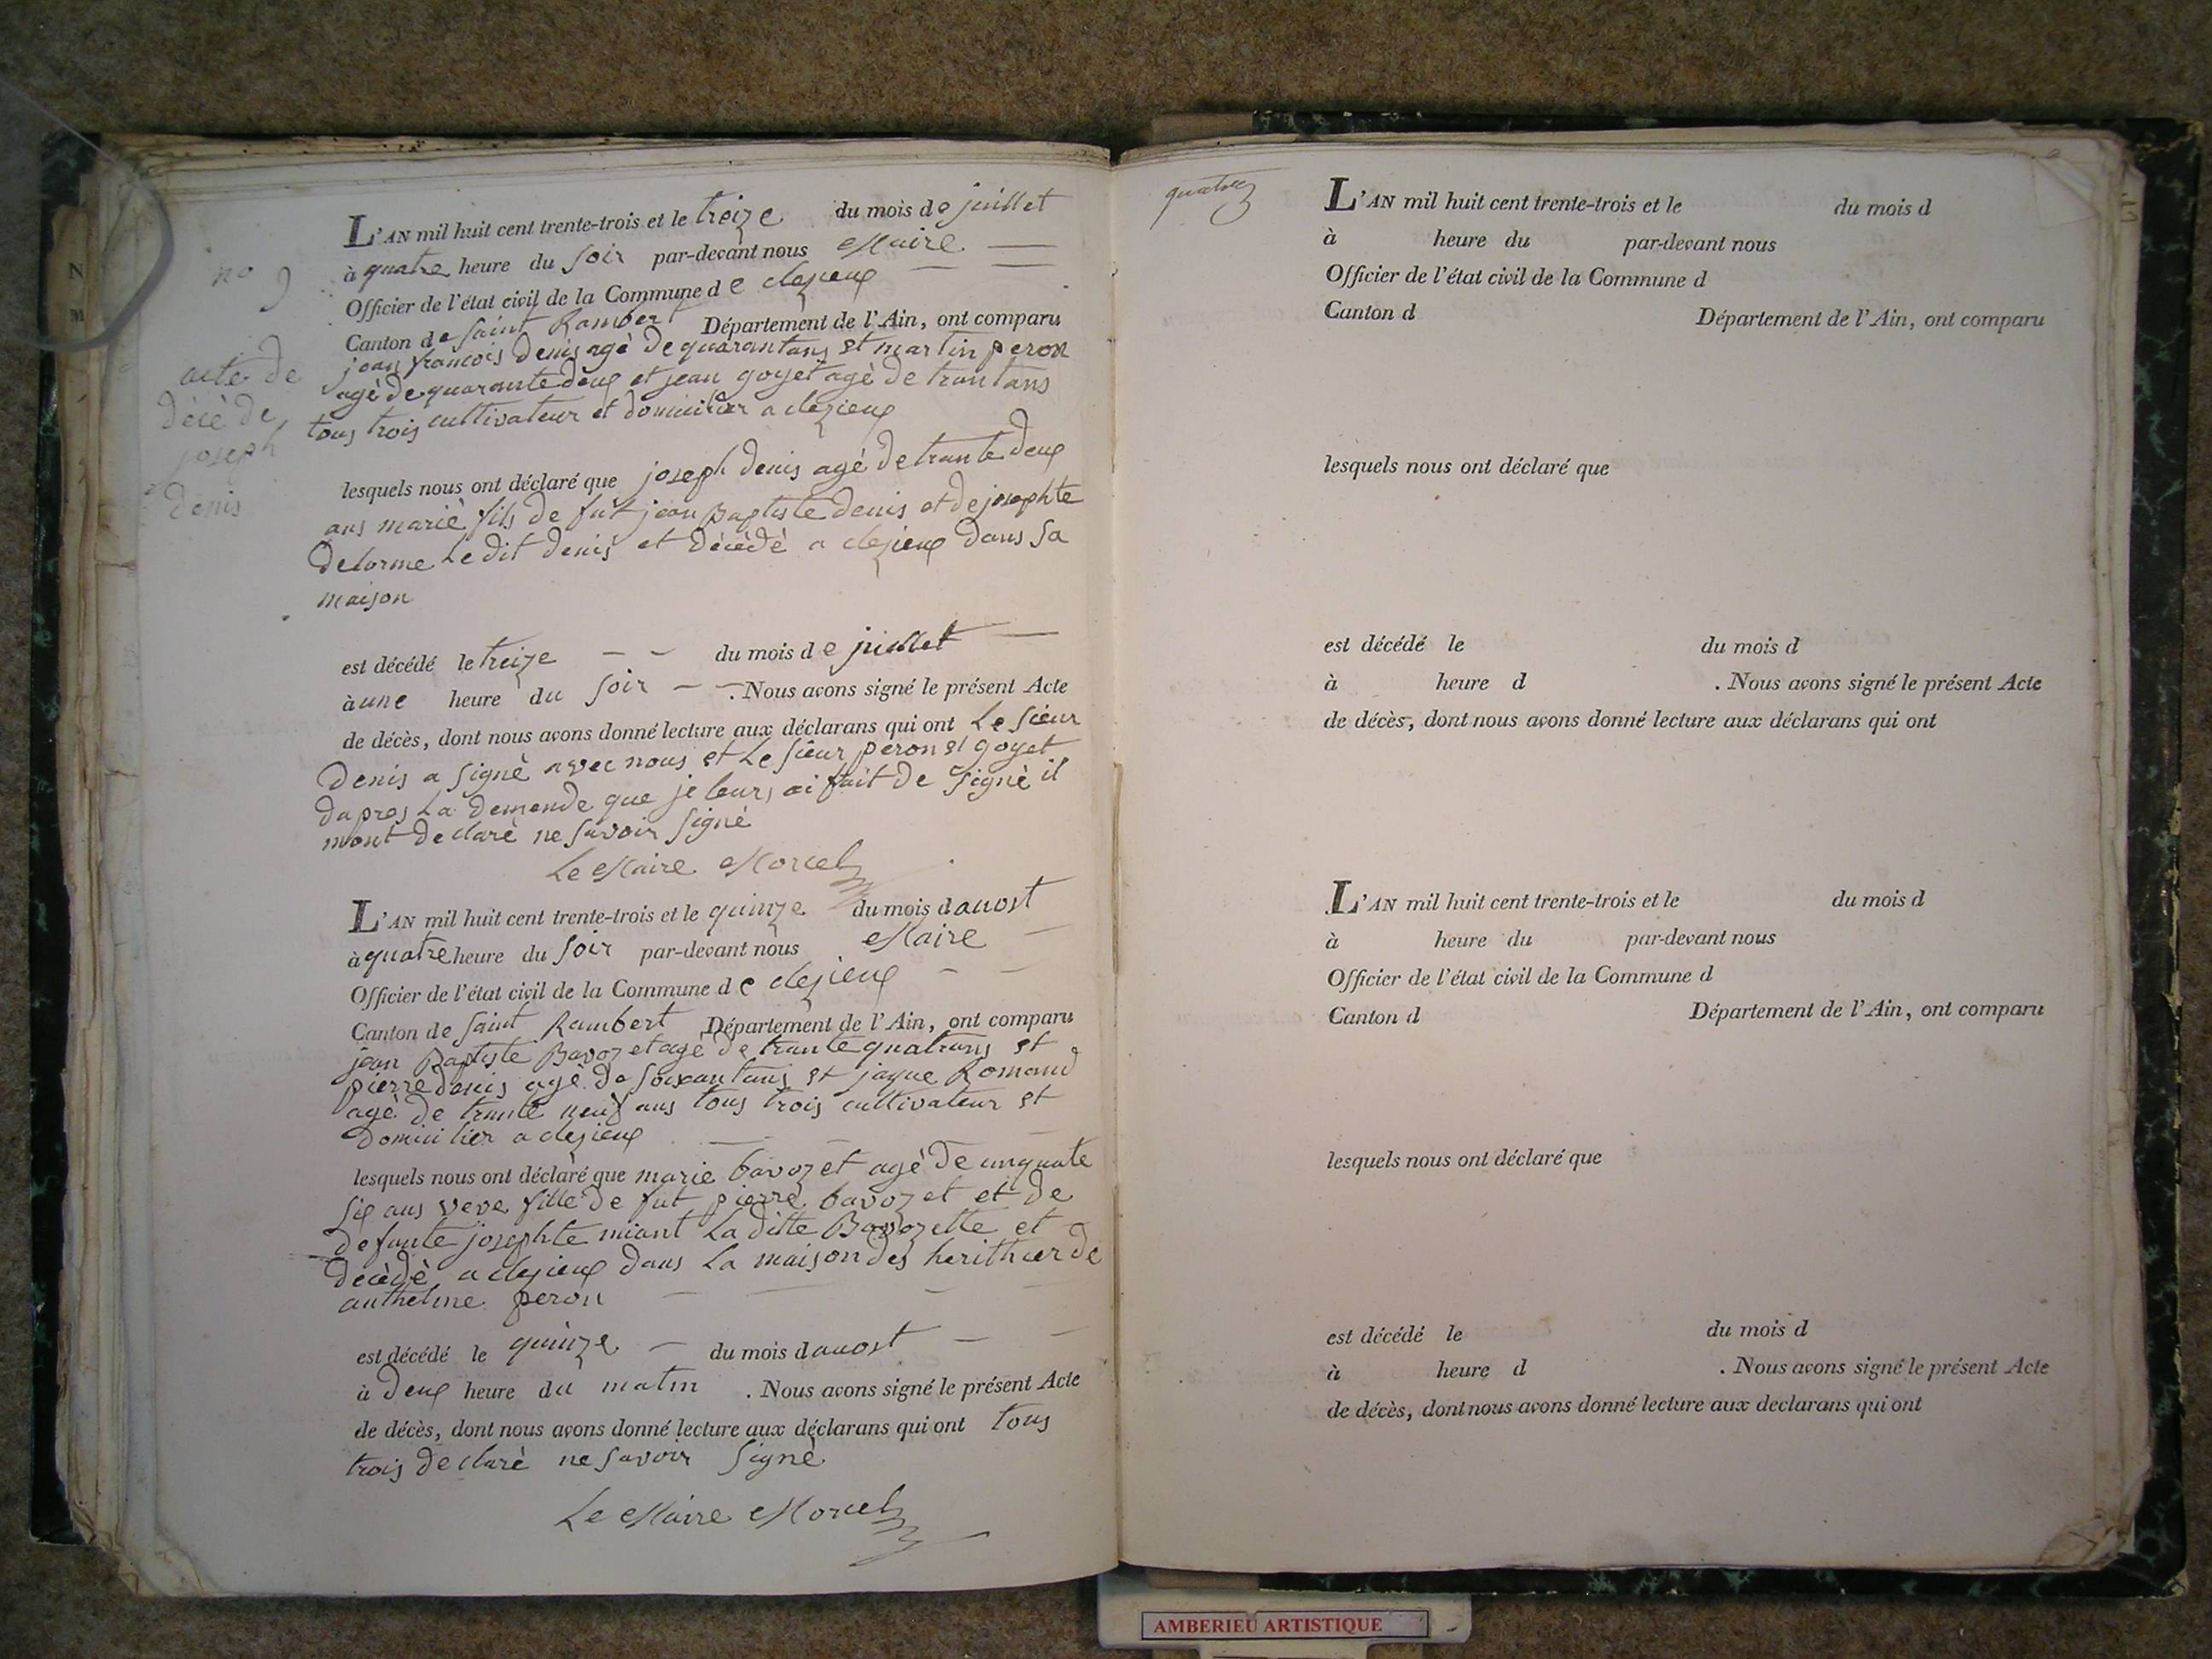 no 9
acte de
décè de
joseph
denis
L'AN mil huit cent trente-trois et le treize du mois de juillet
à quatre heure du soir par-devant nous Maire
Officier de l'état civil de la Commune de clezieux
Canton de saint Rambert Département de l'Ain, ont comparu
jean francois denis agè de quarantans et martin peron
agè de quarante deux et jean goyet agè de trantans
tous trois cultivateur et domicilier a clezieux
lesquels nous ont déclaré que joseph denis agé de trante deux
ans marié fils de fût jean Baptiste denis et de josephte
delorme Le dit denis et décédè a clezieux dans sa
maison
est décédé le treize du mois de juillet
à une heure du soir . Nous avons signé le présent Acte
de décès, dont nous avons donné lecture aux déclarans qui ont Le sieur
Denis a signè avec nous et Le sieur peron et goyet
dapres La demende que je leurs ai fait de signè il
mont declarè ne savoir signè
Le Maire Morcel
L'AN mil huit cent trente-trois et le quinze du mois d auost
à quatre heure du soir par-devant nous Maire
Officier de l'état civil de la Commune de clezieux
Canton de saint Rambert Département de l'Ain, ont comparu
jean Baptiste Bavozet agé de trante quatrans et
pierre denis agè de soixantans et jaque Romand
agè de trante neuf ans tous trois cultivateur et
domicilier a clezieux
lesquels nous ont déclaré que marie bavozet agè de cinquate
six ans veve fille de fut pierre bavozet et de
defunte josephte miant La ditte Bavozette et
decèdè a clezieux dans La maison des herithier de
anthelme peron
est décédé le quinze du mois d auost
à deux heure du matin . Nous avons signé le présent Acte
de décès, dont nous avons donné lecture aux déclarans qui ont tous
trois declarè ne savoir signè
Le Maire Morcel
L'AN mil huit cent trente-trois et le du mois d
à heure du par-devant nous
Officier de l'état civil de la Commune d
Canton d Département de l'Ain, ont comparu
lesquels nous ont déclaré que
est décédé le du mois d
à heure d . Nous avons signé le présent Acte
de décès, dont nous avons donné lecture aux déclarans qui ont
L'AN mil huit cent trente-trois et le du mois d
à heure du par-devant nous
Officier de l'état civil de la Commune d
Canton d Département de l'Ain, ont comparu
lesquels nous ont déclaré que
est décédé le du mois d
à heure d . Nous avons signé le présent Acte
de décès, dont nous avons donné lecture aux declarans qui ont
AMBERIEU ARTISTIQUE